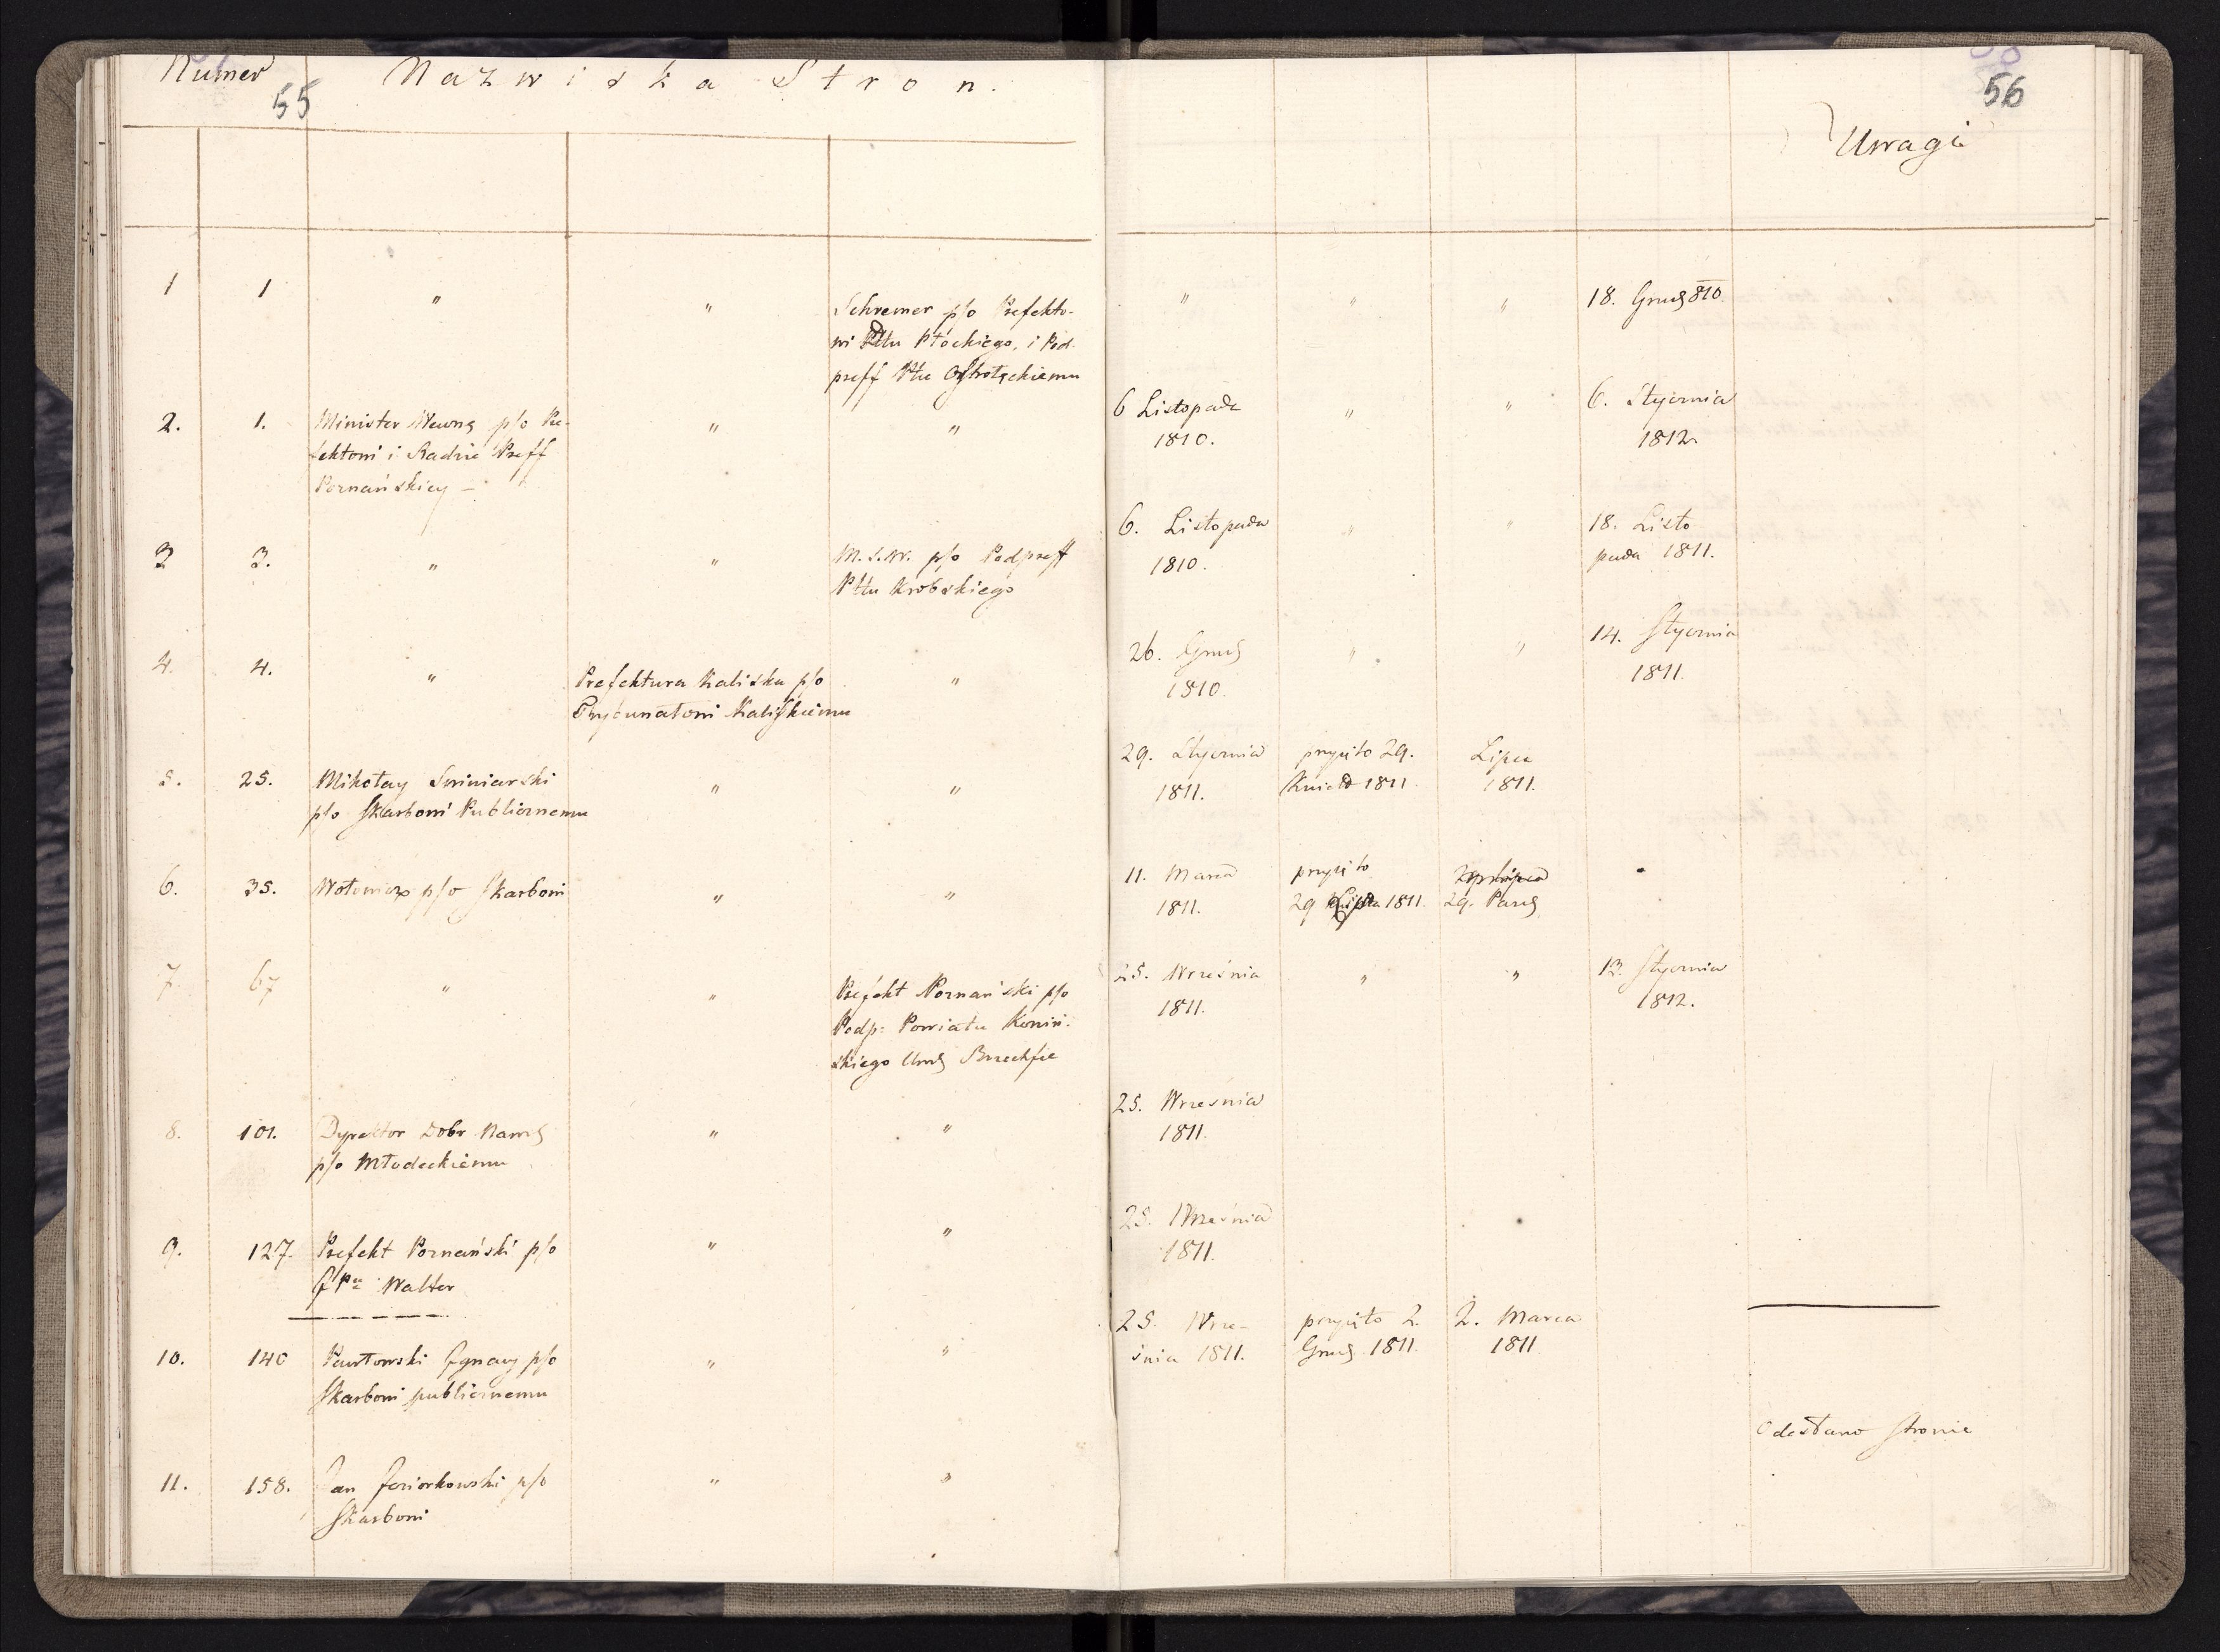 Numer
55
Nazwiska Stron.
56
Uwagi
1 1 " " Schremer p/o Prefekto-
wi Pttu Płockiego, i Pod-
preff Pttu Ostrołęckiemu
" " " 18. Grud 810.
2. 1. Minister Wewnę p/o Pre-
fektowi i Radzie Preff
Poznańskiey —
" "
6 Listopada
1810.
" " 6. Stycznia
1812.
3 3. " " M.S.W. p/o Podpreff
Pttu Krobskiego
6. Listopada
1810.
" " 18. Listo
pada 1811.
4. 4. " Prefektura Kaliska p/o
Trybunałowi Kaliskiemu
"
26. Grud
1810.
" " 14. Stycznia
1811.
5. 25. Mikołay Swiniarski
p/o Skarbowi Publicznemu
" "
29. Stycznia
1811.
przyięto 29.
Kwiet 1811.
Lipca
1811.
6. 35. Wołowicz p/o Skarbowi
" "
11. Marca
1811.
przyięto
29 1811.
29. Paźd
7 67 " " Prefekt Poznański p/o
Podp: Powiatu Koniń-
skiego Urod
25. Września
1811.
" " 13. Stycznia
1812.
8. 101. Dyrektor Dobr Narod
p/o Młodeckiemu
" "
25. Września
1811.
9. 127. Prefekt Poznański p/o
Walter
" "
25. Września
1811.
10. 140 Pawłowski Ignacy p/o
Skarbowi publicznemu
" "
25. Wrze-
śnia 1811.
przyięto 2.
Grud 1811.
2. Marca
1811
11. 158. Jan Jeziorkowski p/o
Skarbowi
" "
Odesłano stronie